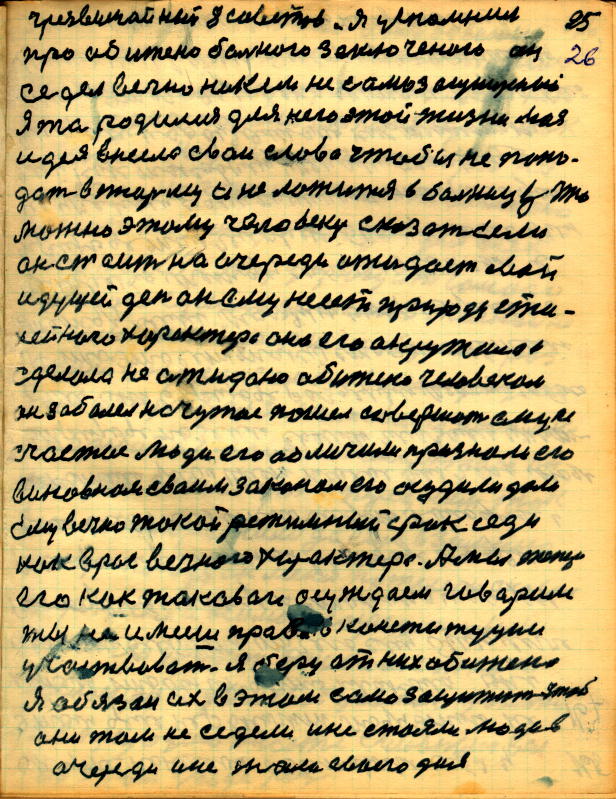 чрезвычайный 8 советов. Я упомянил 25
про обижено болного заключеного он 26
седел вечно никем не самозащищеный
я та родился для него этой жизни моя
идея внесла свои слова чтобы не попо-
дат в тюрму и не ложится в болницу Что
можно этому человеку сказат если
он стоит на очереди ожидает свой
идущей ден он ему несет природу сти-
хейного характера она его окружила
зделала не ожидано обижено человеком
он заболел на чужое пошел совершат ему не
счастие люди его обличили признали его
виновном своим законом его осудили дали
ему вечно такой режимный срок седи
как враг вечного характера. А мы тоже
его как таковаго осуждаем говорим
ты не имееш право в конституции
участвоват. Я беру от них обижено
я обязан их в этом самозащитит чтоб
они там не седели и не стояли люди в
очереди и не ждали своего дня